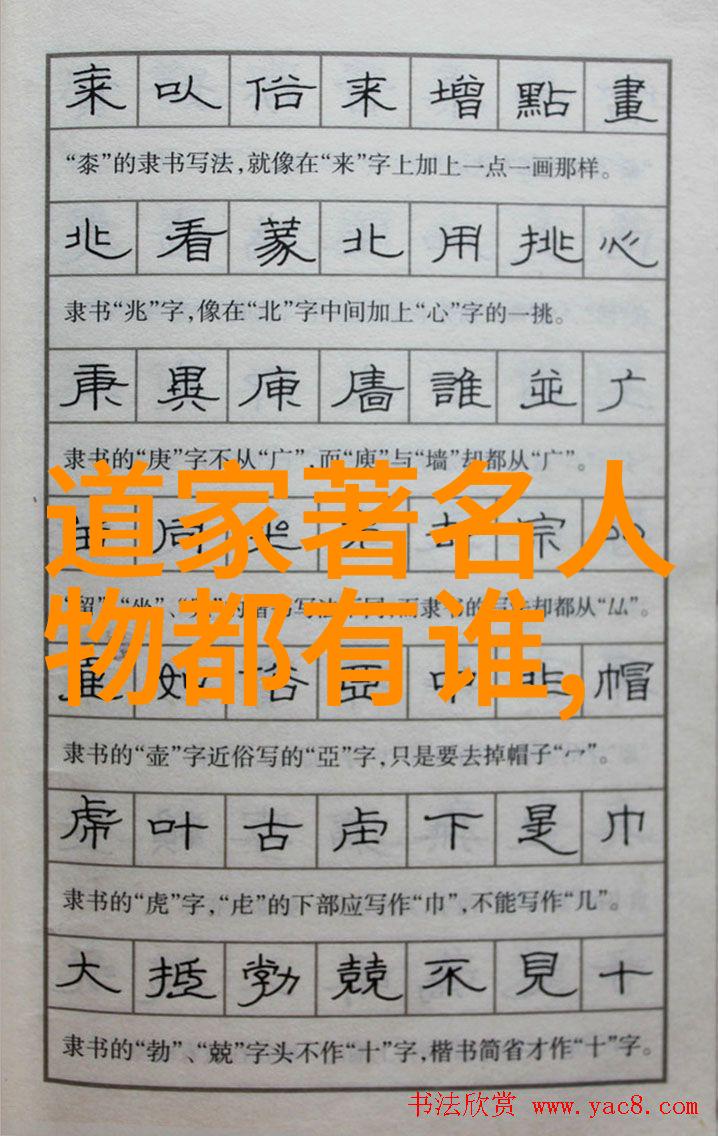 桼以俗来增點畫
“桼”的隶书写法,就像在“来”字上加上一点一画那样。
兆看蒙北用挑心
隶书“兆”字,像在“北”字中间加上“心”字的一挑。
庚異庾墻誰並广
隶书的“庚”字不从“广”,而“庾”与“墙”却都从“广”。
道家著名人
同坐宗
“留”、“坐”、的楷书写法不同,而隶书的写法却都从“厸”。
物都有谁,
如俗亞中非帽
隶书的“壶”字近俗写的“亞”字,只是要去掉帽子“宀”。
虎叶古虍下是巾
隶书的“虎”字,“虍”的下部应写作“巾”,不能写作“几”。
大抵勃兢不見十
隶书的“勃”、“兢”字头不作“十”字,楷书简省才作“十”字。
书法欣赏 www.yac8.com